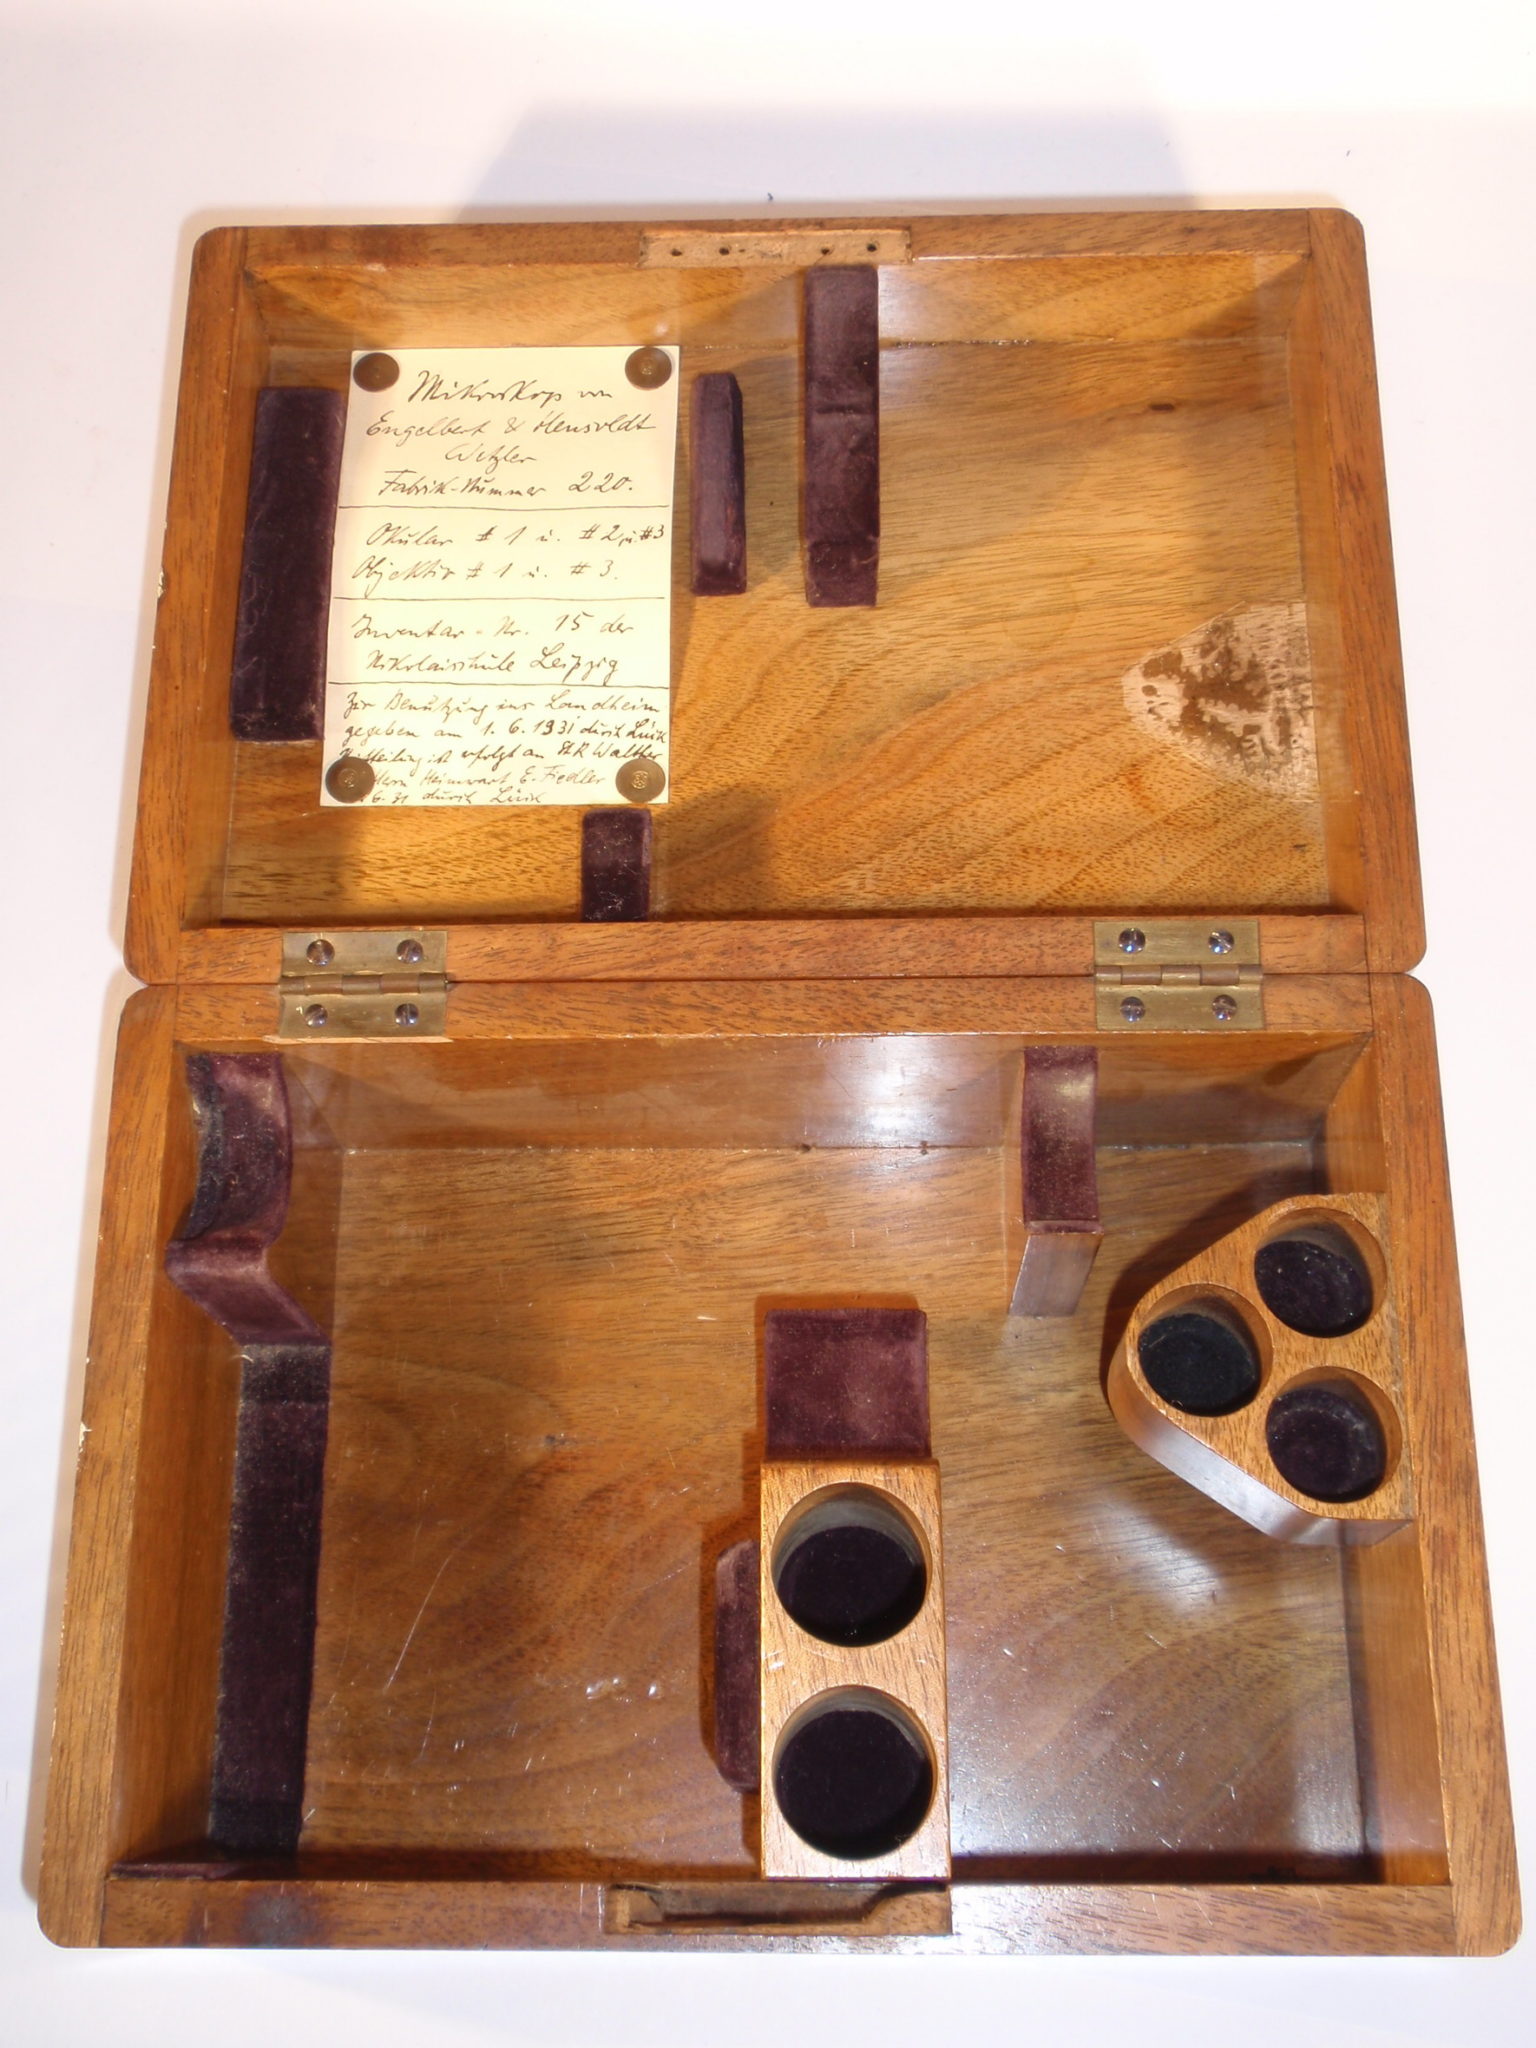 Mikroskop von
Engelbert & Hensoldt
Wetzlar
Fabrik-Nummer 220.
Okular # 1 u. # 2 u. # 3
Objektiv # 1 u. # 3.
Inventar-Nr. 15 der
Nikolaischule Leipzig
Zur Benützung ins Landheim
gegeben am 1. 6. 1931 durch Lück
Mitteilung ist erfolgt an StR Walther
Herrn Heimwart E. Fiedler
6. 31 durch Lück